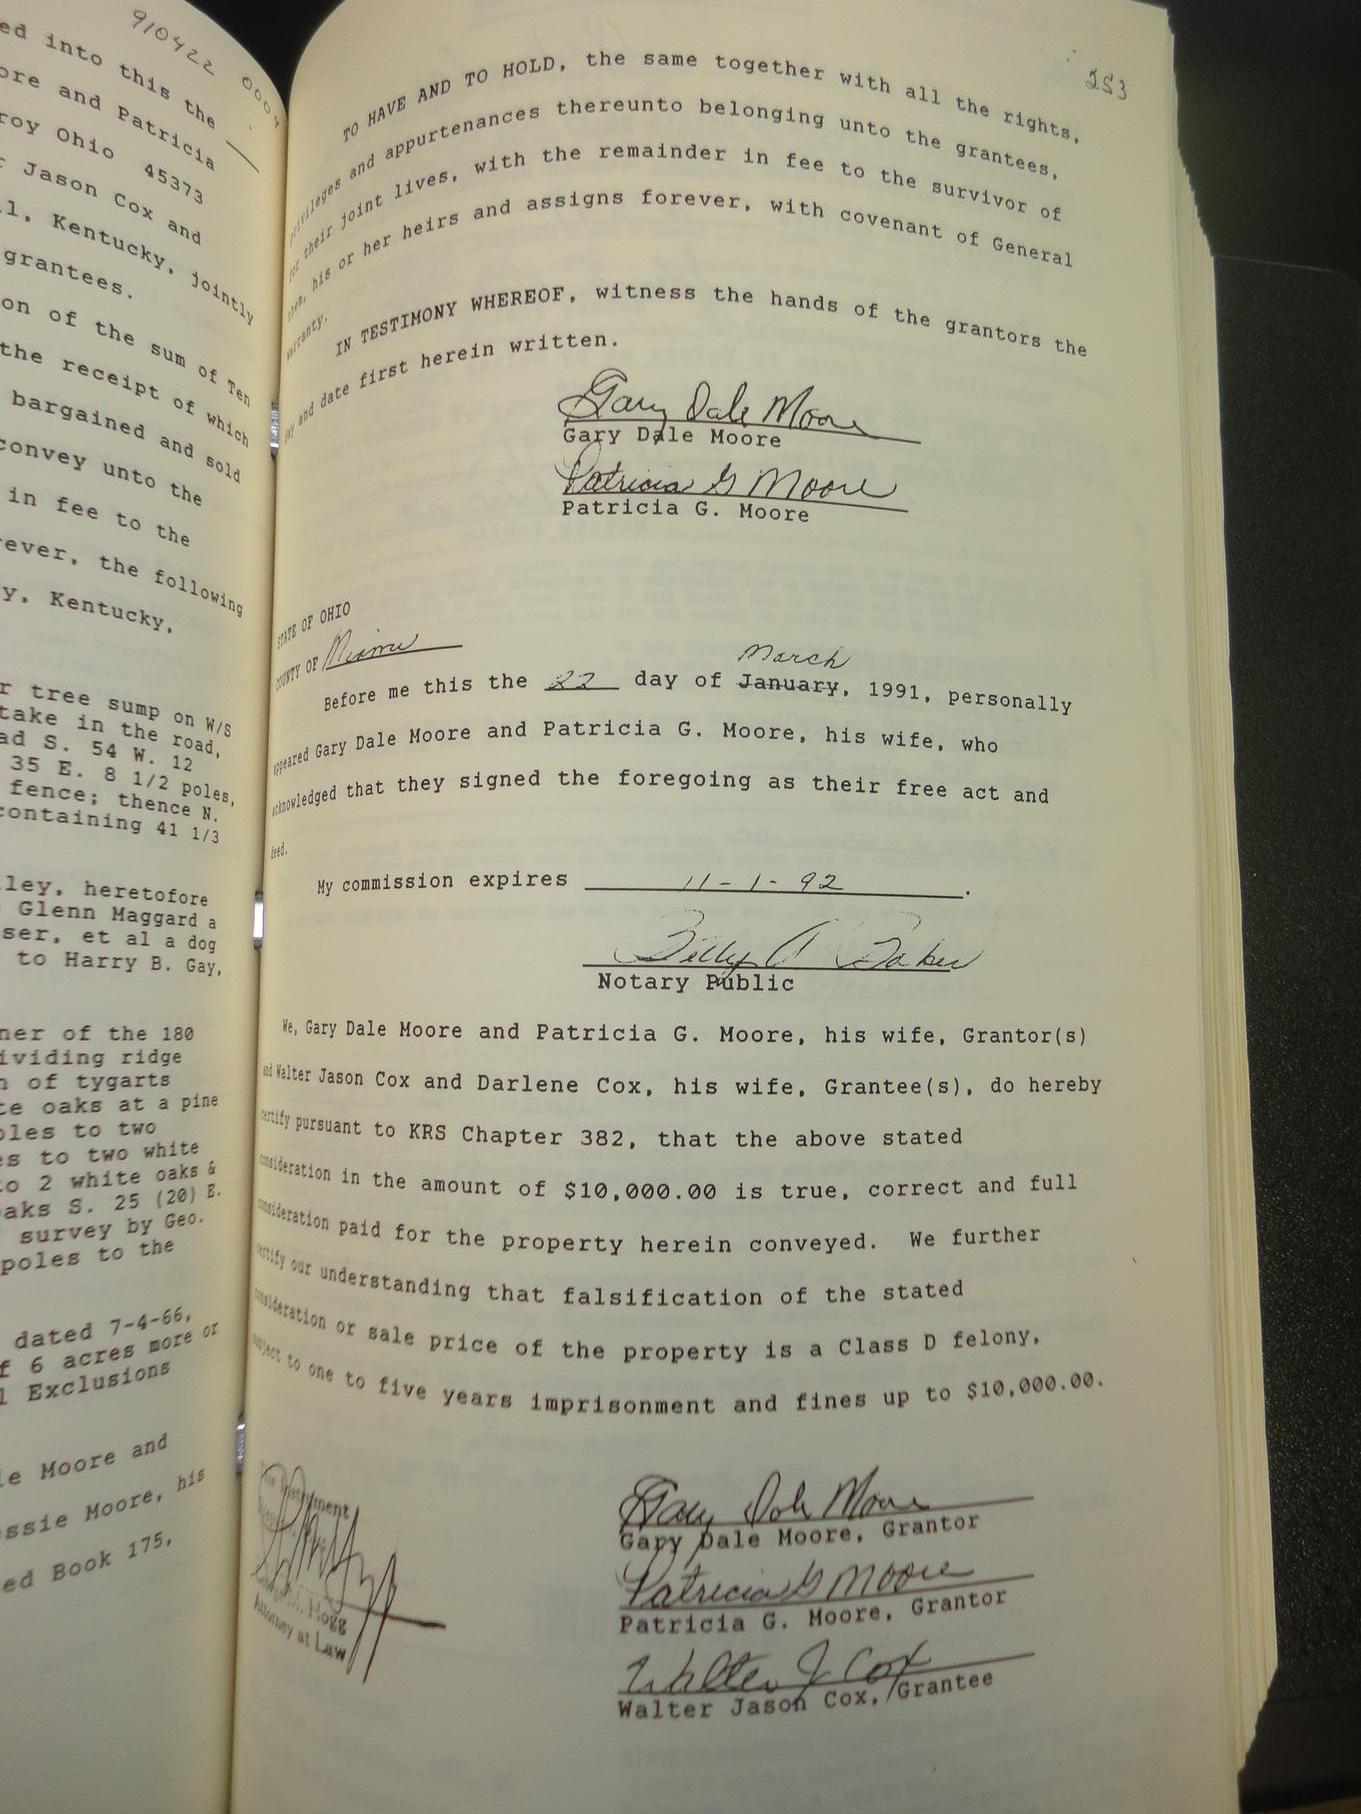 910422 000
ed into this the
ore and Patricia
roy Ohio 45373
Jason Cox and
l, Kentucky, jointly
grantees.
on of the sum of Ten
the receipt of which
bargained and sold
convey unto the
in fee to the
ever, the following
y, Kentucky,
r tree sump on W/S
take in the road,
ad S. 54 W. 12
35 E. 8 1/2 poles,
fence; thence N.
containing 41 1/3
ley, heretofore
Glenn Maggard a
ser, et al a dog
to Harry B. Gay,
ner of the 180
ividing ridge
n of tygarts
te oaks at a pine
oles to two
es to two white
to 2 white oaks &
oaks S. 25 (20) E.
survey by Geo.
poles to the
dated 7-4-66,
f 6 acres more or
l Exclusions
le Moore and
essie Moore, his
ed Book 175,
253
TO HAVE AND TO HOLD, the same together with all the rights,
privileges and appurtenances thereunto belonging unto the grantees,
for their joint lives, with the remainder in fee to the survivor of
them, his or her heirs and assigns forever, with covenant of General
Warranty.
IN TESTIMONY WHEREOF, witness the hands of the grantors the
day and date first herein written.
Gary Dale Moore
Gary Dale Moore
Patricia G Moore
Patricia G. Moore
STATE OF OHIO
COUNTY OF Miami
March
Before me this the 22 day of January, 1991, personally
appeared Gary Dale Moore and Patricia G. Moore, his wife, who
acknowledged that they signed the foregoing as their free act and
deed.
My commission expires 11-1-92.
Billy A Baker
Notary Public
We, Gary Dale Moore and Patricia G. Moore, his wife, Grantor(s)
and Walter Jason Cox and Darlene Cox, his wife, Grantee(s), do hereby
certify pursuant to KRS Chapter 382, that the above stated
consideration in the amount of $10,000.00 is true, correct and full
consideration paid for the property herein conveyed. We further
certify our understanding that falsification of the stated
consideration or sale price of the property is a Class D felony,
subject to one to five years imprisonment and fines up to $10,000.00.
Instrument
Hogg
Attorney at Law
Gary Dale Moore
Gary Dale Moore, Grantor
Patricia G Moore
Patricia G. Moore, Grantor
Walter J Cox
Walter Jason Cox, Grantee